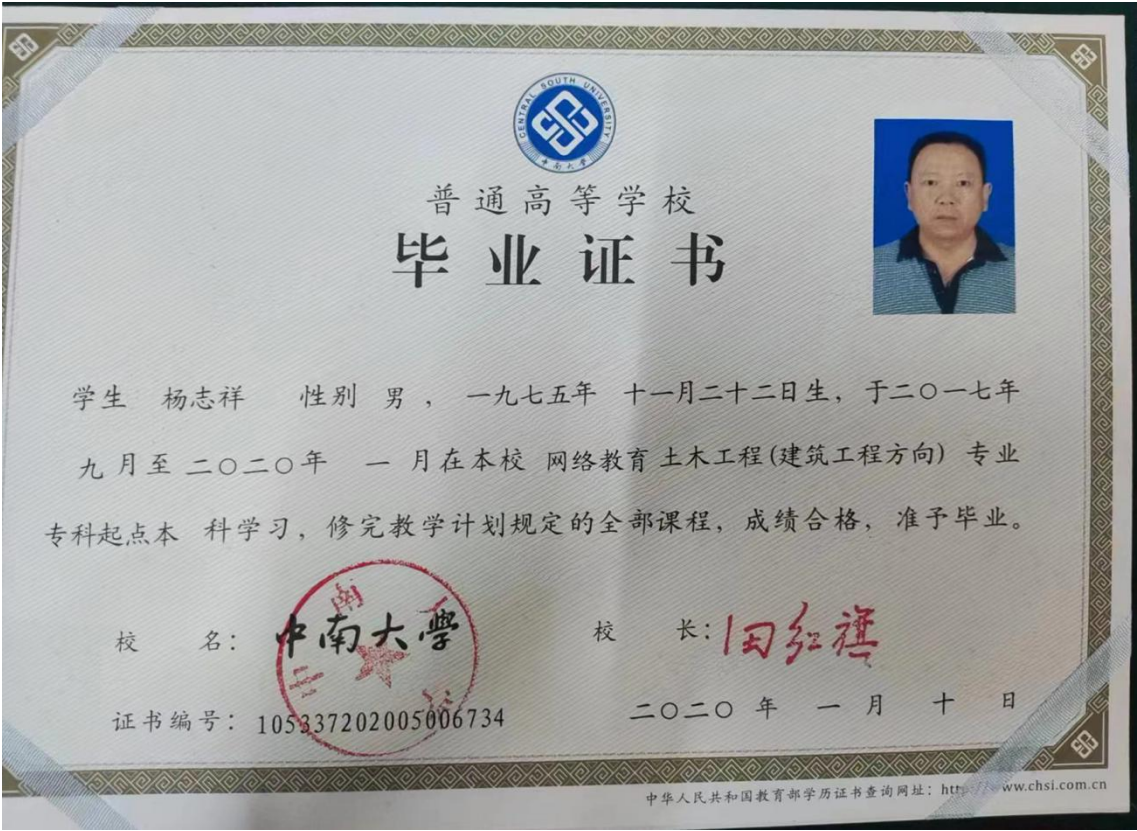 CENTRAL SOUTH UNIVERSITY
中南大学
普通高等学校
毕业证书
学生 杨志祥 性别 男 ， 一九七五年 十一月二十二日生，于二〇一七年
九月至二〇二〇年 一 月在本校 网络教育 土木工程(建筑工程方向) 专业
专科起点本 科学习，修完教学计划规定的全部课程，成绩合格，准予毕业。
校 名： 中南大學 校 长： 田红旗
证书编号：105337202005006734 二〇二〇 年 一 月 十 日
中华人民共和国教育部学历证书查询网址：http://www.chsi.com.cn